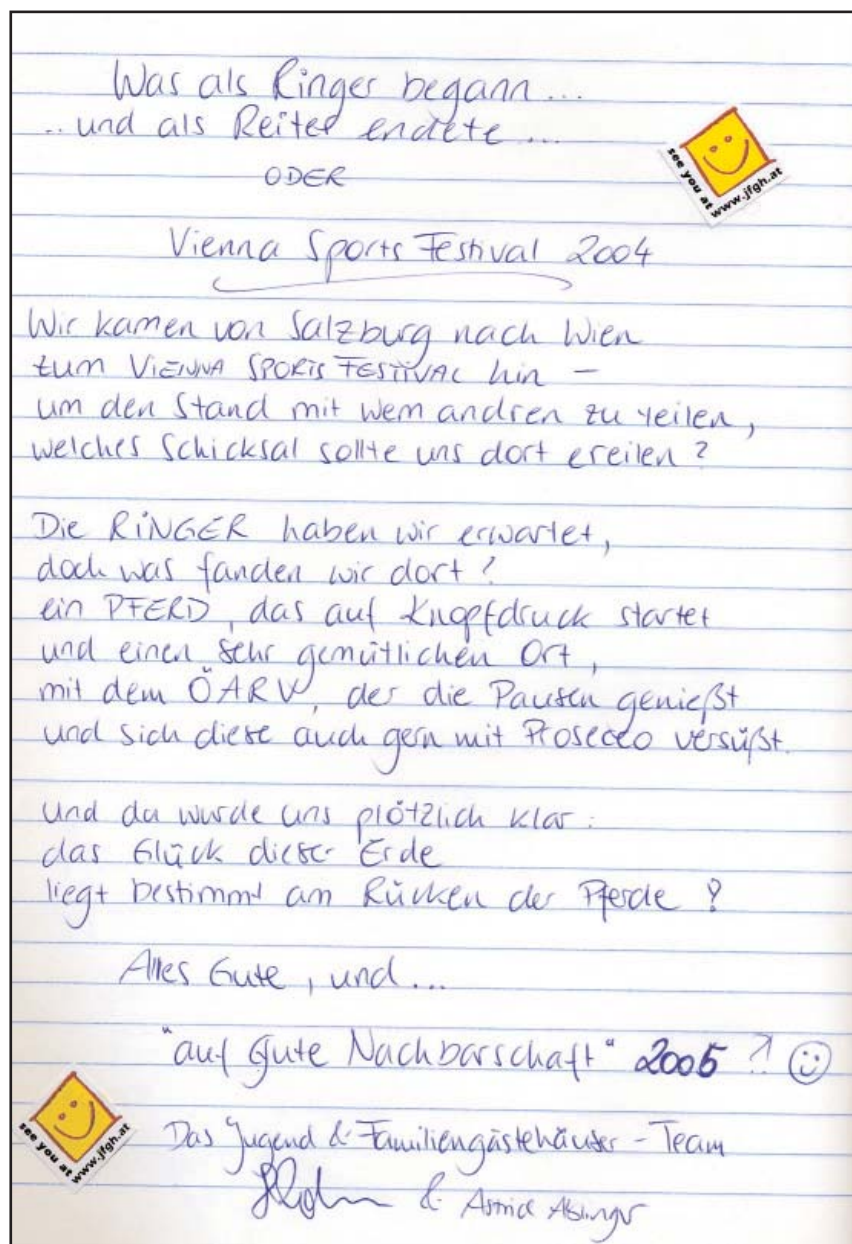 Was als Ringer begann...
..und als Reiter endete...
ODER
see you at
www.jfgh.at
Vienna Sports Festival 2004
Wir kamen von Salzburg nach Wien
zum VIENNA SPORTS FESTIVAL hin –
um den Stand mit wem andren zu teilen,
welches Schicksal sollte uns dort ereilen?
Die RINGER haben wir erwartet,
doch was fanden wir dort?
ein PFERD, das auf Knopfdruck startet
und einen sehr gemütlichen Ort,
mit dem ÖARV, der die Pausen genießt
und sich diese auch gern mit Prosecco versüßt.
und da wurde uns plötzlich klar:
das Glück dieser Erde
liegt bestimmt am Rücken der Pferde!
Alles Gute, und...
"auf gute Nachbarschaft" 2005 ?!
see you at
www.jfgh.at
Das Jugend & Familiengästehäuser - Team
& Astrid